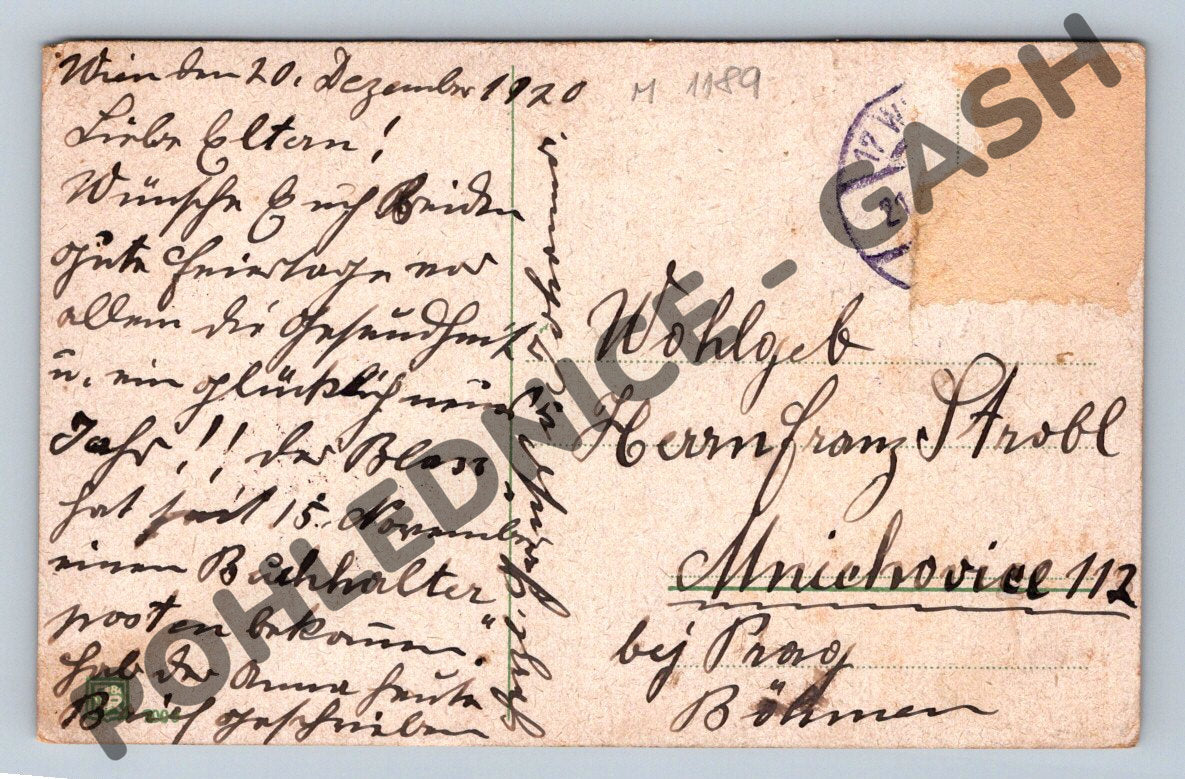 Wien den 20. Dezember 1920
Liebe Eltern!
Wünsche Euch Beiden
gute Feiertage vor
allem die Gesundheit
u. ein glücklich neues
Jahr!! der Blass
hat seit 15. November
einen Buchhalter
posten bekom̄en."
hab der Anna heute
Brief geschrieben
M 1189
17 W
21
Wohlgeb
Herrn Franz Strobl
Mnichovice 112
bej Prag
Böhmen
POHLEDNICE - GASH